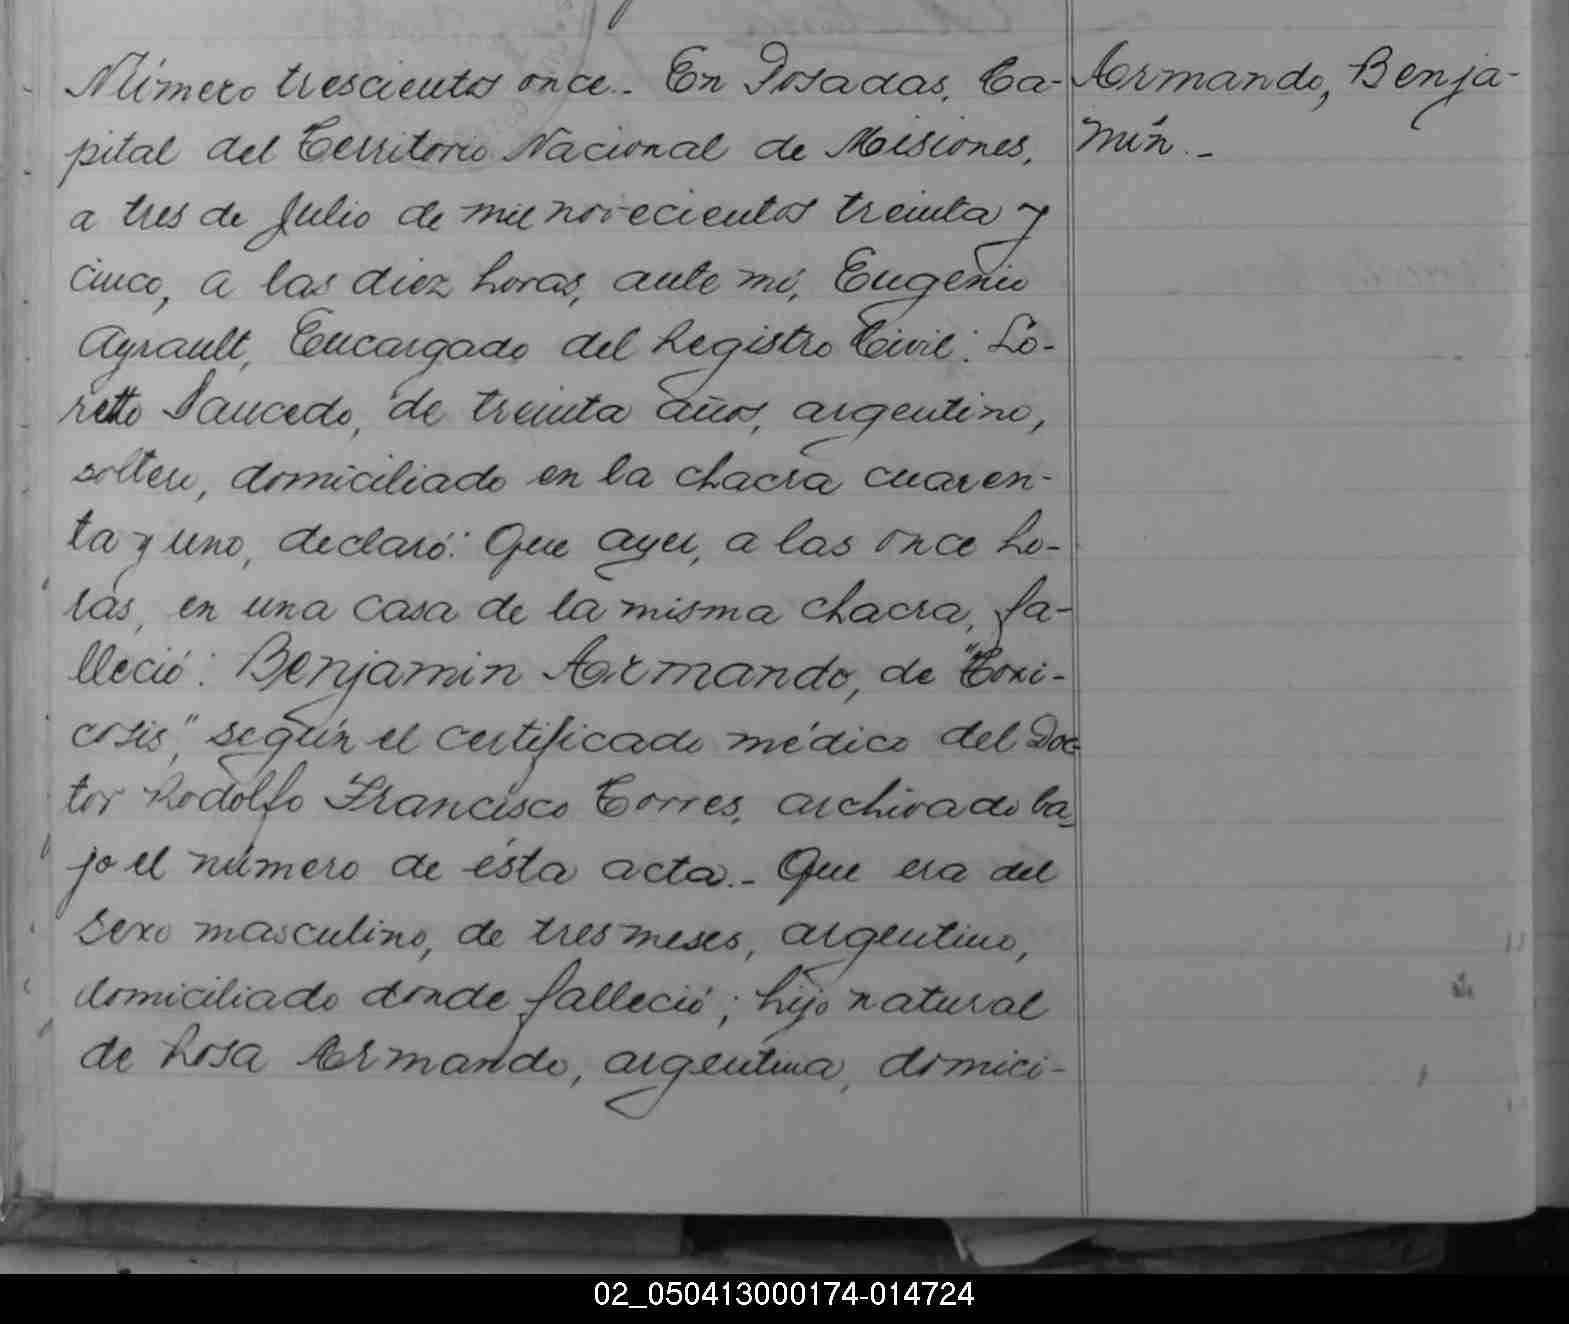 Número trescientos once.- En Posadas, Ca-
pital del Territorio Nacional de Misiones,
a tres de Julio de mil novecientos treinta y
cinco, a las diez horas, ante mí, Eugenio
Ayrault, Encargado del Registro Civil: Lo-
retto Saucedo, de treinta años, argentino,
soltero, domiciliado en la chacra cuaren-
ta y uno, declaró: Que ayer, a las once ho-
ras, en una casa de la misma chacra, fa-
lleció: Benjamin Armando, de "Toxi-
cosis," según el certificado médico del Doc-
tor Rodolfo Francisco Torres, archivado ba-
jo el número de ésta acta.- Que era del
sexo masculino, de tres meses, argentino,
domiciliado donde falleció; hijo natural
de Rosa Armando, argentina, domici-
Armando, Benja-
mín.-
02_050413000174-014724